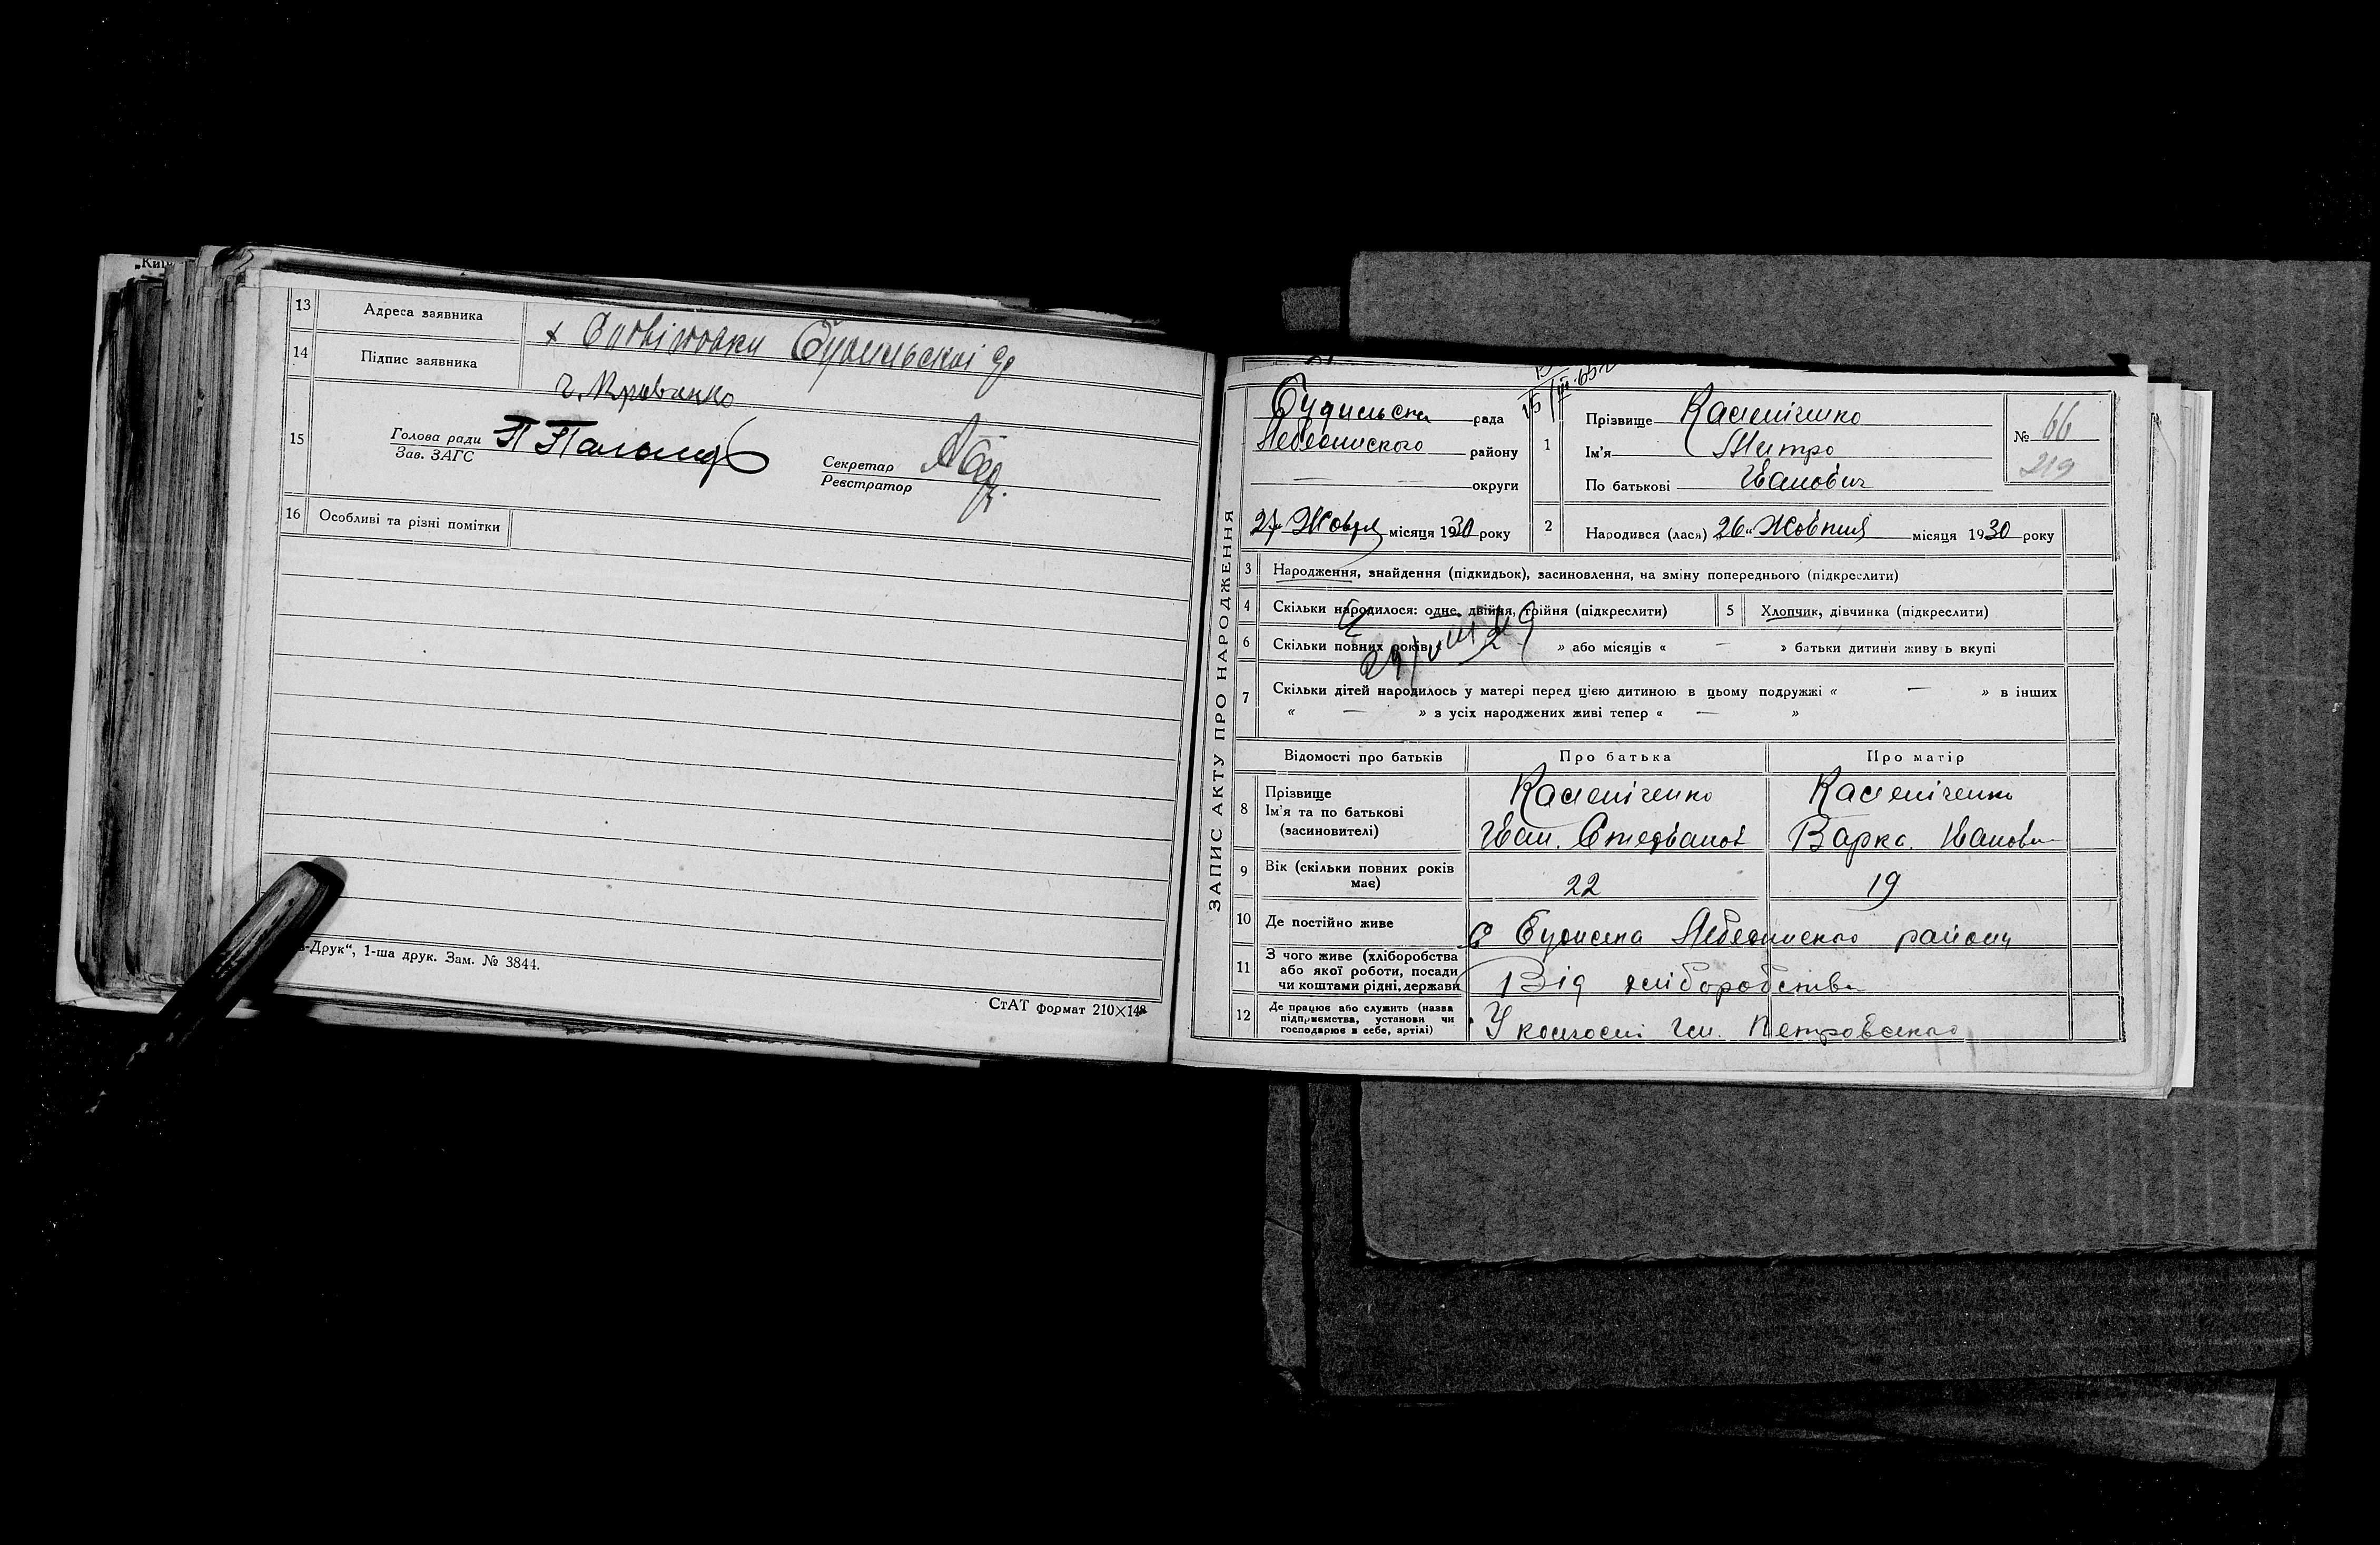 „Киї
13 Адреса заявника
Х
14 Підпис заявника
15 Голова ради
Зав. ЗАГС
Секретар
Реєстратор
16 Особливі та різні помітки
-Друк“, 1-ша друк. Зам. № 3844.
СтАТ формат 210×148
ЗАПИС АКТУ ПРО НАРОДЖЕННЯ
рада
Лебединского району
округи
27 місяця 1930 року
1 Прізвище
Ім'я Митро
По батькові Іванович
№ 66
219
2 Народився (лася) „26“ Жовтня місяця 1930 року
3 Народження, знайдення (підкидьок), засиновлення, на зміну попереднього (підкреслити)
4 Скільки народилося: одне, двійня, трійня (підкреслити)
5 Хлопчик, дівчинка (підкреслити)
6 Скільки повних років « 2 » або місяців « — » батьки дитини живуть вкупі
7 Скільки дітей народилось у матері перед цією дитиною в цьому подружжі « — » в інших
« — » з усіх народжених живі тепер « — »
Відомості про батьків
Про батька
Про матір
8 Прізвище
Ім'я та по батькові
(засиновителі)
Іван. Степанов
Варка. Іванов
9 Вік (скільки повних років
має)
22
19
10 Де постійно живе
С Лебединского району
11 З чого живе (хліборобства
або якої роботи, посади
чи коштами рідні, держави
Від хліборобства
12 Де працює або служить (назва
підприємства, установи чи
господарює в себе, артілі)
У колгоспі Ім. Петровського